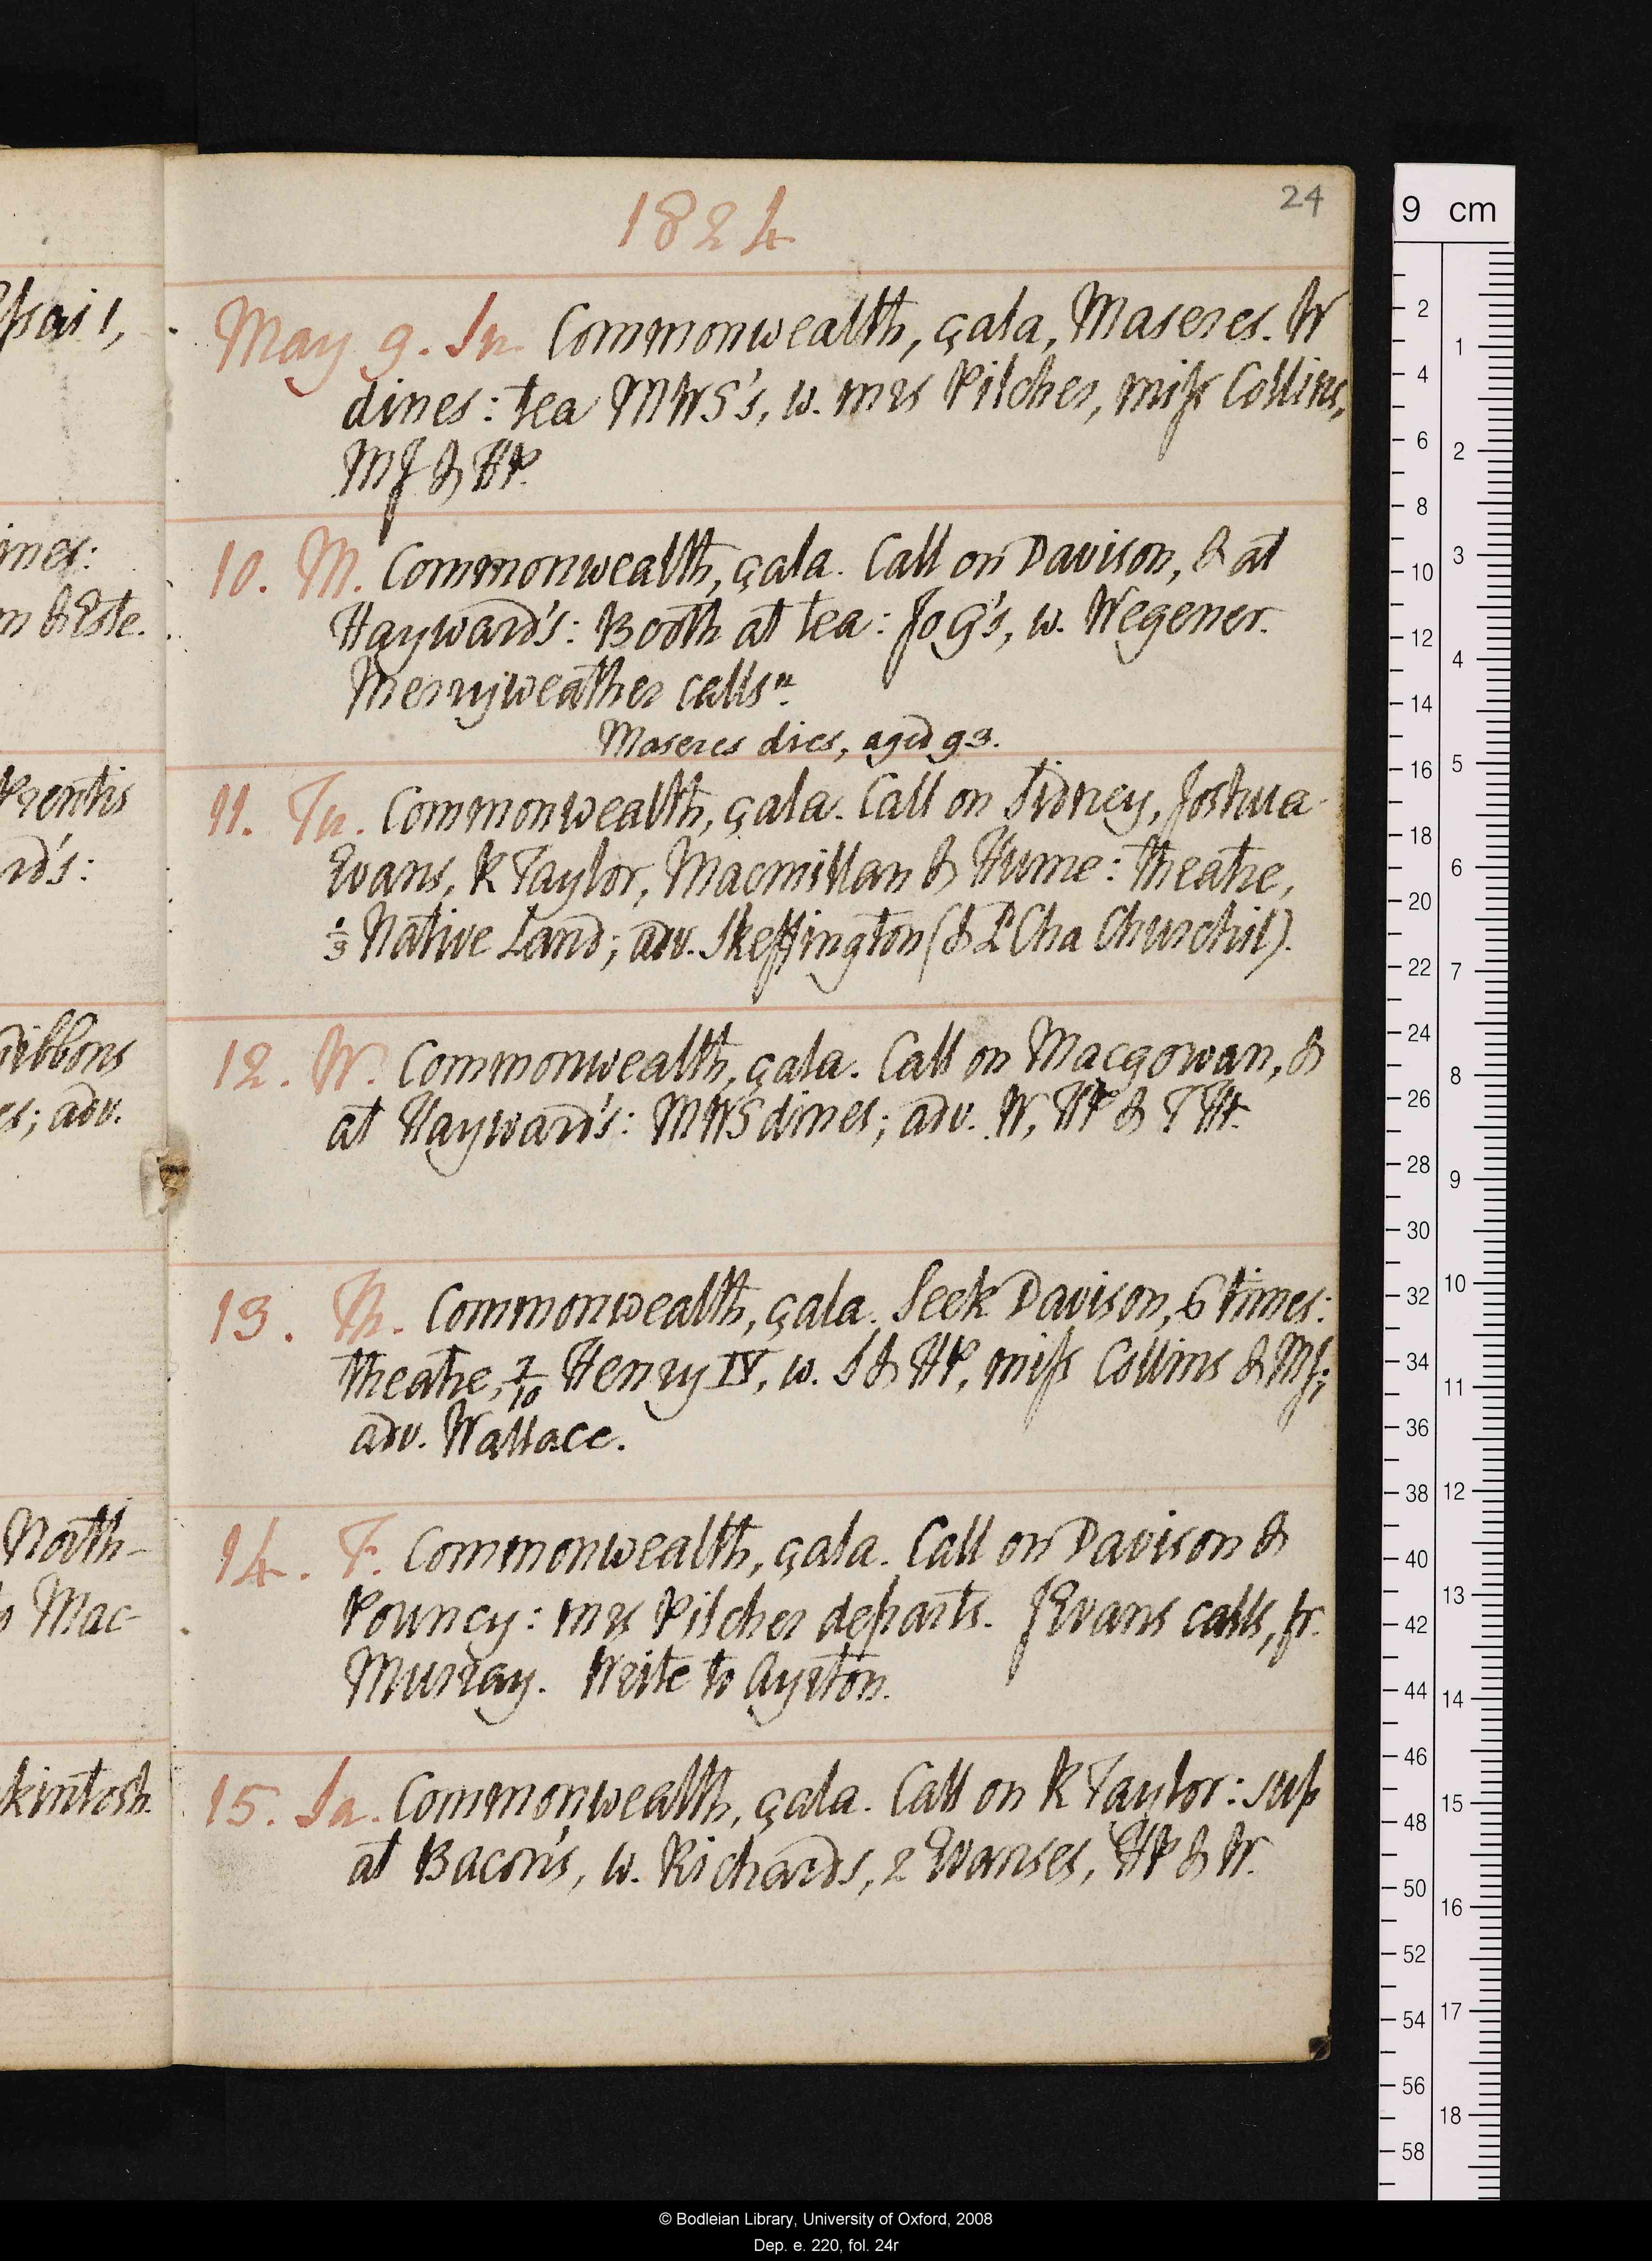 24
1824
May 9. Su. Commonwealth, çala, Maseres. W
dines: tea MWS's, w. mrs Pilcher, miss Collins,
MJ & HP.
10. M. Commonwealth, çala. Call on Davison, & at
Hayward's: Booth at tea: Jo G's, w. Wegener.
Merryweather calls n.
Maseres dies, aged 93.
11. Tu. Commonwealth, çala. Call on Sidney, Joshua
Evans, R Taylor, Macmillan & Hume: theatre,
1/3 Native Land; adv. Skeffington (& Ld Cha Churchil).
12. W. Commonwealth, çala. Call on Macgowan, &
at Hayward's: MWS dines; adv. W, HP & THt.
13. Th. Commonwealth, çala. Seek Davison, 6 times:
theatre, 7/10 Henry IV, w. S & HP, miss Collins & MJ;
adv. Wallace.
14. F. Commonwealth, çala. Call on Davison &
Pouncy: mrs Pilcher departs. J Evans calls, fr.
Murray. Write to Ayrton.
15. Sa. Commonwealth, çala. Call on R Taylor: sup
at Bacon's, w. Richards, 2 Evanses, HP & W.
ines:
n & Este.
Prentis
rd's:
Gibbons
es; adv.
Noth-
o Mac-
kintosh.
9 cm
2
4
6
8
10
12
14
16
18
20
22
24
26
28
30
32
34
36
38
40
42
44
46
48
50
52
54
56
58
1
2
3
4
5
6
7
8
9
10
11
12
13
14
15
16
17
18
© Bodleian Library, University of Oxford, 2008
Dep. e. 220, fol. 24r